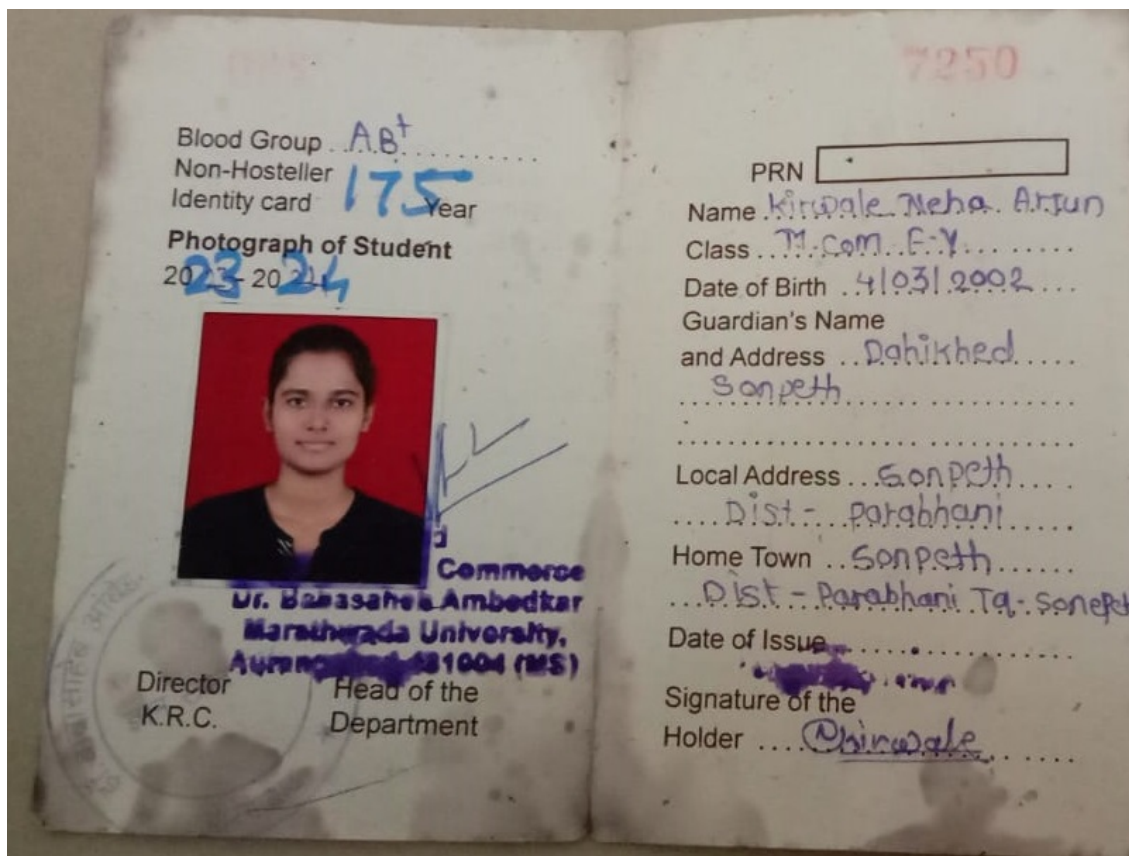 Blood Group .. AB+
Non-Hosteller
Identity card 175 Year
Photograph of Student
2023-2024
Commerce
Dr. Babasaheb Ambedkar
Marathwada University,
(MS)
Director
K.R.C.
Head of the
Department
7250
PRN
Name Kirwale Neha Arjun
Class M.com F.Y.
Date of Birth 4/03/2002
Guardian's Name
and Address Dahikhed
Sonpeth
Local Address Sonpeth
Dist - Parabhani
Home Town Sonpeth
Dist - Parabhani Tq - Sonepeth
Date of Issue
Signature of the
Holder